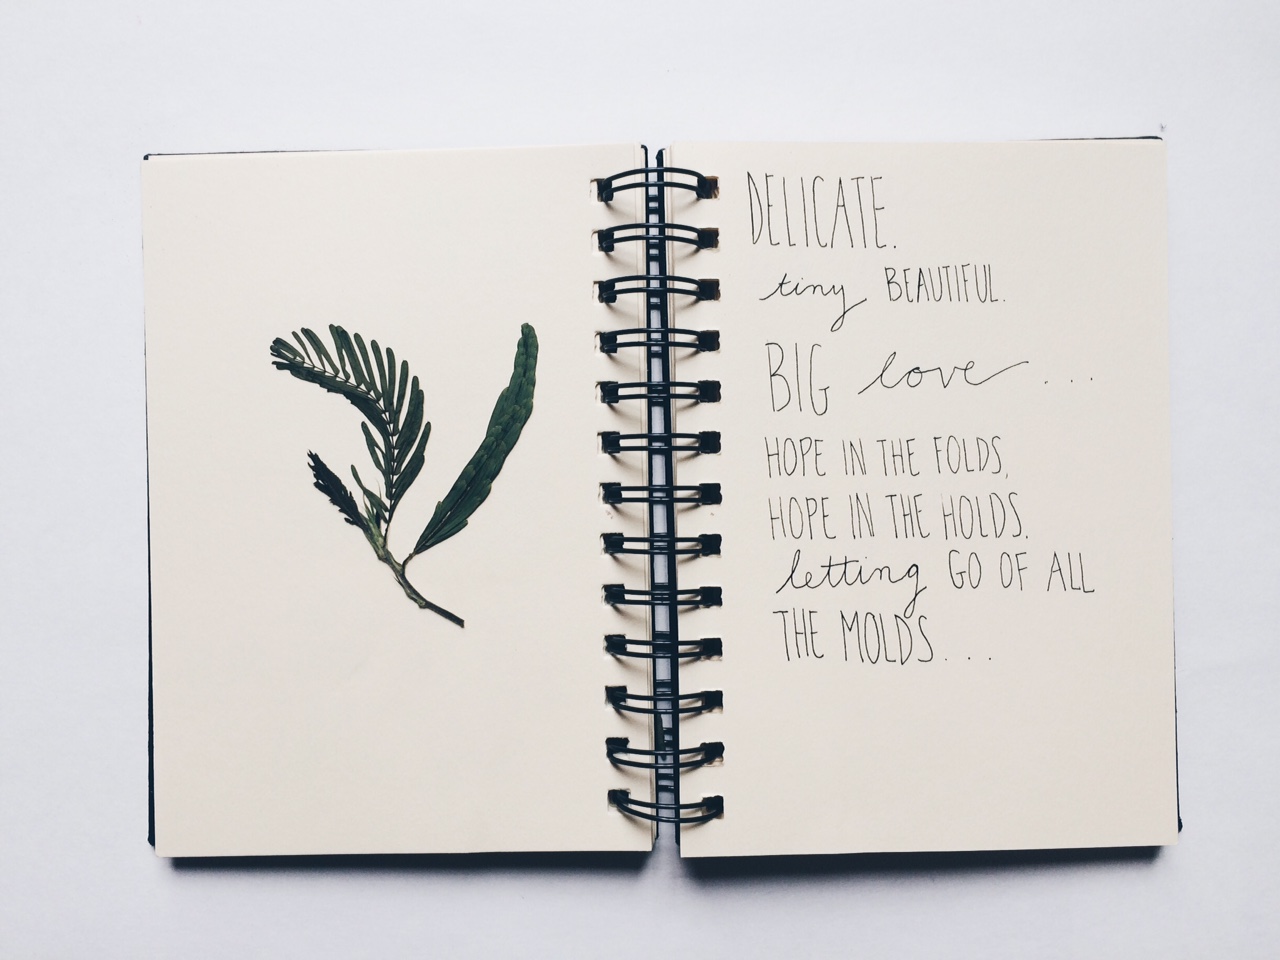 DELICATE.
tiny BEAUTIFUL.
BIG love ...
HOPE IN THE FOLDS,
HOPE IN THE HOLDS.
letting GO OF ALL
THE MOLDS...